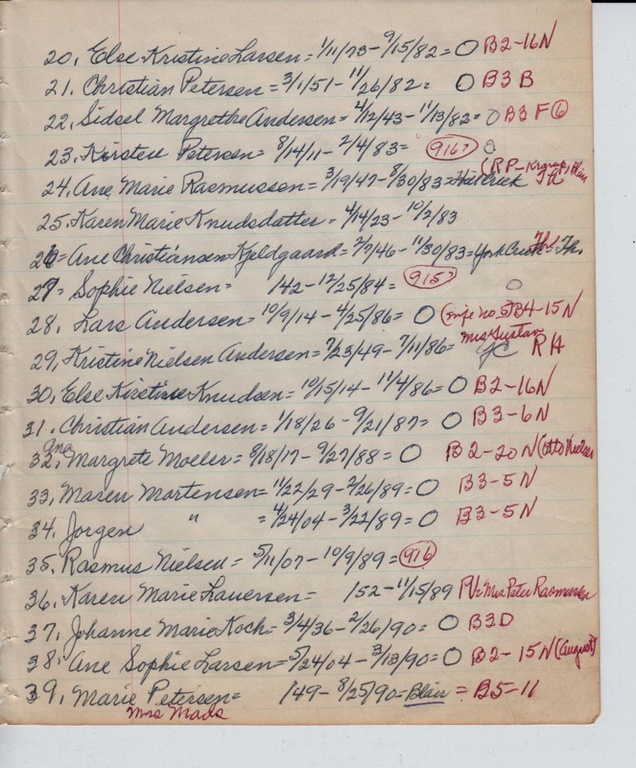 20. Else Kristine Larsen = 1/11/73 - 9/15/82 = O B2-16N
21. Christian Petersen = 3/1/51 - 11/26/82 = O B3 B
22. Sidsel Margrethe Andersen = 4/12/43 - 11/13/82 = O B3 F 6
23. Kirsten Petersen = 8/14/11 - 2/4/83 = 916?
24. Ane Marie Rasmussen = 3/19/47 - 8/30/83 =
25. Karen Marie Knudsdatter = 4/14/23 - 10/2/83
26 = Ane Christiansen Kjeldgaard = 2/7/46 - 11/30/83 = York Creek
27 = Sophie Nielsen = 142 - 12/25/84 = 915? O
28. Lars Andersen = 10/9/14 - 4/25/86 = O B4-15N
29. Kristine Nielsen Andersen = 7/23/49 - 7/11/86 = Mrs Gustav
30. Else Kirstine Knudsen = 10/15/14 - 11/4/86 = O B2-16N
31. Christian Andersen = 1/18/26 - 9/21/87 = O B3-6N
32. Ane Margrete Moeler = 8/18/17 - 9/27/88 = O B2-20N (Otto Nielsen
33. Maren Mortensen = 11/22/29 - 2/26/89 = O B3-5N
34. Jorgen " = 4/24/04 - 3/22/89 = O B3-5N
35. Rasmus Nielsen = 5/11/07 - 10/9/89 = 916
36. Karen Marie Lauersen = 152 - 11/15/89 Mrs Peter Rasmussen
37. Johanne Marie Koch = 3/4/36 - 2/26/90 = O B3D
38. Ane Sophie Larsen = 5/24/04 - 3/13/90 = O B2-15N (August)
39. Marie Petersen = 149 - 8/25/90 = Blair = B5-11
Mrs Mads